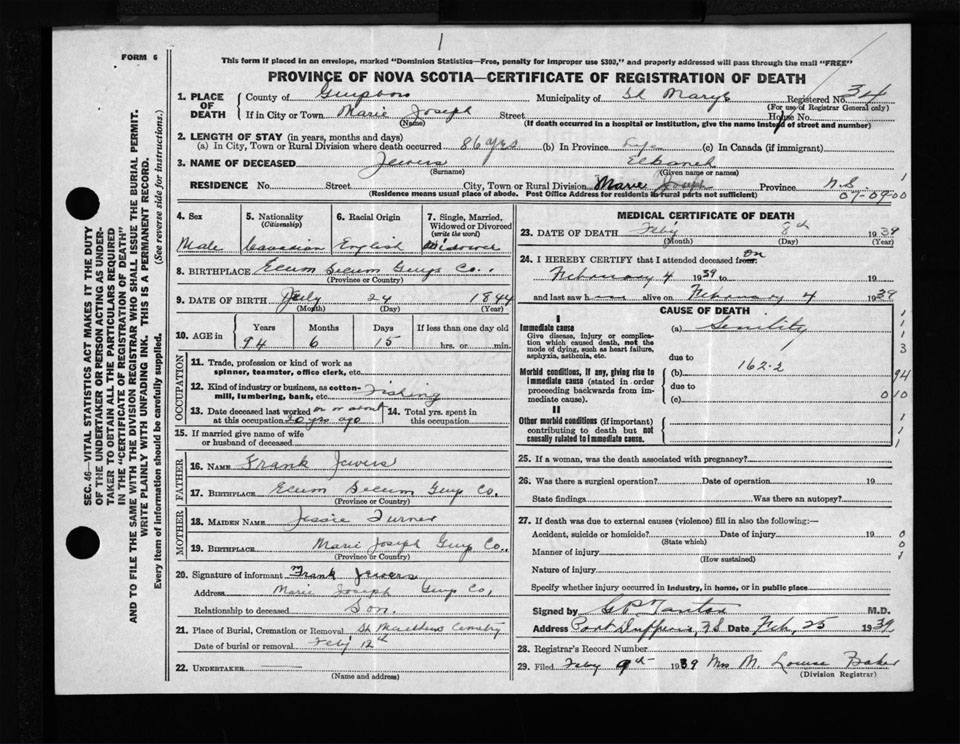 1
FORM 6
This form if placed in an envelope, marked "Dominion Statistics—Free, penalty for improper use $300," and properly addressed will pass through the mail "FREE"
PROVINCE OF NOVA SCOTIA—CERTIFICATE OF REGISTRATION OF DEATH
1. PLACE OF DEATH
County of Guysboro Municipality of St Marys Registered No. 34
(For use of Registrar General only)
If in City or Town Marie Joseph Street House No.
(Name) (If death occurred in a hospital or institution, give the name instead of street and number)
2. LENGTH OF STAY (in years, months and days)
(a) In City, Town or Rural Division where death occurred 86 yrs. (b) In Province Life (c) In Canada (if immigrant)
3. NAME OF DECEASED Jewers Elkanah
(Surname) (Given name or names)
RESIDENCE No. Street City, Town or Rural Division Marie Joseph Province N.S
(Residence means usual place of abode. Post Office Address for residents in rural parts not sufficient) 07-09-00
4. Sex 5. Nationality (Citizenship) 6. Racial Origin 7. Single, Married, Widowed or Divorced (write the word)
Male Canadian English Widower
8. BIRTHPLACE Ecum Secum Guys Co..
(Province or Country)
9. DATE OF BIRTH July 24 1844
(Month) (Day) (Year)
10. AGE in Years Months Days If less than one day old
94 6 15 hrs. or min.
OCCUPATION
11. Trade, profession or kind of work as spinner, teamster, office clerk, etc.
12. Kind of industry or business, as cotton-mill, lumbering, bank, etc. Fishing
13. Date deceased last worked at this occupation on or about 20 yrs ago 14. Total yrs. spent in this occupation
15. If married give name of wife or husband of deceased
FATHER
16. NAME Frank Jewers
17. BIRTHPLACE Ecum Secum Guys Co.
(Province or Country)
MOTHER
18. MAIDEN NAME Jessie Turner
19. BIRTHPLACE Marie Joseph Guy Co..
(Province or Country)
20. Signature of informant Frank Jewers
Address Marie Joseph Guys Co,
Relationship to deceased Son.
21. Place of Burial, Cremation or Removal St Matthews Cemetry
Date of burial or removal Feby 12th
22. UNDERTAKER
(Name and address)
MEDICAL CERTIFICATE OF DEATH
23. DATE OF DEATH Feby 8th 1939
(Month) (Day) (Year)
24. I HEREBY CERTIFY that I attended deceased from on
February 4 1939 to 19
and last saw him alive on February 4 1939
CAUSE OF DEATH
I
Immediate cause (a) Senility
Give disease, injury or complication which caused death, not the mode of dying, such as heart failure, asphyxia, asthenia, etc.
due to
162-2
Morbid conditions, if any, giving rise to immediate cause (stated in order proceeding backwards from immediate cause).
(b)
due to
(c)
II
Other morbid conditions (if important) contributing to death but not causally related to immediate cause.
25. If a woman, was the death associated with pregnancy?
26. Was there a surgical operation? Date of operation 19
State findings Was there an autopsy?
27. If death was due to external causes (violence) fill in also the following:—
Accident, suicide or homicide? Date of injury 19
(State which)
Manner of injury
(How sustained)
Nature of injury
Specify whether injury occurred in industry, in home, or in public place
Signed by M.D.
Address Port Dufferin, N.S Date Feb, 25 1939
28. Registrar's Record Number
29. Filed Feby 9th 1939 Mrs M. Louise Baker
(Division Registrar)
SEC. 46—VITAL STATISTICS ACT MAKES IT THE DUTY
OF THE UNDERTAKER OR PERSON ACTING AS UNDER-
TAKER TO OBTAIN ALL THE PARTICULARS REQUIRED
IN THE "CERTIFICATE OF REGISTRATION OF DEATH"
AND TO FILE THE SAME WITH THE DIVISION REGISTRAR WHO SHALL ISSUE THE BURIAL PERMIT.
WRITE PLAINLY WITH UNFADING INK. THIS IS A PERMANENT RECORD.
Every item of information should be carefully supplied. (See reverse side for instructions.)